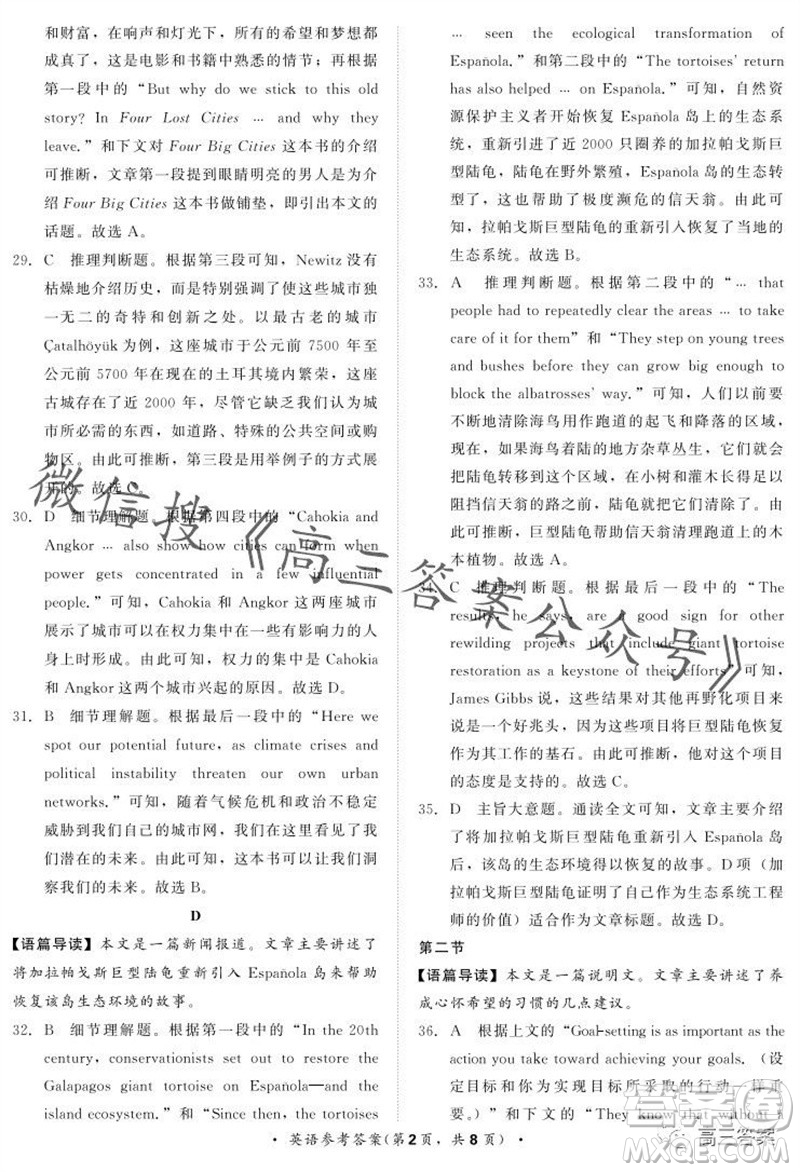 和财富，在响声和灯光下，所有希望和梦想都
成真了，这是电影和书籍中熟悉的情节；再根据
第一段中的“But why do we stick to this old
story? In Four Lost Cities … and why they
leave.”和下文对 Four Big Cities 这本书的介绍
可推断，文章第一段提到眼睛明亮的男人是为介
绍 Four Big Cities 这本书做铺垫，即引出本文的
话题。故选 A。
29. C 推理判断题。根据第三段可知，Newitz 没有
枯燥地介绍历史，而是寻找使这些城市独
一无二的奇特和创新之处。以最古老的城市
Çatalhöyük 为例，这座城市于公元前 7500 年至
公元前 5700 年在现在的土耳其境内繁荣，这座
古城存在了近 2000 年，尽管它缺少我们认为城
市所必需的东西，如道路、特殊的公共空间或购
物区。由此可推断，第三段是用举例子的方式展
开的。故选 C。
30. D 细节理解题。根据第四段中的“Cahokia and
Angkor … also show how cities can form when
power gets concentrated in a few influential
people.”可知，Cahokia 和 Angkor 这两座城市
展示了城市可以在权力集中在一些有影响力的人
身上时形成。由此可知，权力的集中是 Cahokia
和 Angkor 这两个城市兴起的原因。故选 D。
31. B 细节理解题。根据最后一段中的“Here we
spot our potential future, as climate crises and
political instability threaten our own urban
networks.”可知，随着气候危机和政治不稳定
威胁到我们自己的城市网，我们在这里发现了我
们潜在的未来。由此可知，这本书可以让我们洞
察我们的未来。故选 B。
D
【语篇导读】本文是一篇新闻报道。文章主要讲述了
将加拉帕戈斯巨型陆龟重新引入 Española 岛来帮助
恢复该岛生态环境的故事。
32. B 细节理解题。根据第一段中的“In the 20th
century, conservationists set out to restore the
Galapagos giant tortoise on Española—and the
island ecosystem.”和“Since then, the tortoises
… seen the ecological transformation of
Española.”和第二段中的“The tortoises' return
has also helped … on Española.”可知，自然资
源保护主义者开始恢复 Española 岛上的生态系
统，重新引进了近 2000 只圈养的加拉帕戈斯
巨型陆龟，陆龟在野外繁殖，使该岛发生了生态
转变，还帮助了极度濒危的信天翁。由此可
知，拉帕戈斯巨型陆龟的重新引入恢复了当地的
生态系统。故选 B。
33. A 推理判断题。根据第二段中的“… that
people had to repeatedly clear the areas … to take
care of it for them”和“They step on young trees
and bushes before they can grow big enough to
block the albatrosses' way.”可知，以前人们要
不断地清除海鸟用作跑道的起飞和降落的区域，
现在，如果起飞和着陆的地方杂草丛生，他们会
把陆龟转移到该区域，在小树和灌木长到足以
阻挡信天翁的路之前，陆龟会踩到它们。由
此可推断，巨型陆龟帮助信天翁清理跑道上的木
本植物。故选 A。
34. C 推理判断题。根据最后一段中的“The
results, he says, are a good sign for other
rewilding projects that include giant tortoise
restoration as a keystone of their efforts”可知，
James Gibbs 说，这些结果对其他再野化项目来
说是一个好兆头，因为这些项目将巨型陆龟恢复
作为其工作的基石。由此可推断，他对这个项目
的态度是支持的。故选 C。
35. D 主旨大意题。通读全文可知，文章主要介绍
了将加拉帕戈斯巨型陆龟重新引入 Española 岛
后，该岛的生态环境得以恢复的故事。D 项（加
拉帕戈斯巨型陆龟证明了自己作为生态系统工程
师的价值）适合作为文章标题。故选 D。
第二节
【语篇导读】本文是一篇说明文。文章主要讲述了养
成心怀希望的习惯的几点建议。
36. A 根据上文的“Goal-setting is as important as the
action you take toward achieving your goals.（设
定目标和你为实现目标所采取的行动一样重
要。）”可知 “They know that without a
· 英语参考答案（第2页，共8页）·
微信搜《高三答案公众号》
答案圈
高三答案